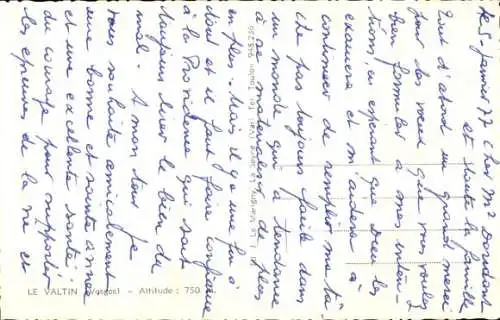 le 5 - janvier 77 Cher Mr
et toute la famille
Tout d'abord un grand merci
pour les voeux que vous voulez
bien formuler à mes inten-
tions, en espérant que Dieu les
exaucera et m'aidera à
continuer de remplir ma tâ-
che pas toujours facile dans
un monde qui a tendance
à se de plus
en plus. Mais il y a une foi
et il faut faire confiance
à la Providence qui sait
toujours tirer le bien du
mal. A mon tour je
vous souhaite amicalement
une bonne et sainte année
et une excellente santé
du courage pour supporter
les épreuves de la vie et
LE VALTIN (Vosges) - Altitude : 750 m.